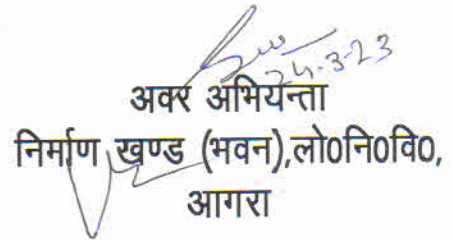 24-3-23
अवर अभियन्ता
निर्माण खण्ड (भवन),लो0नि0वि0,
आगरा